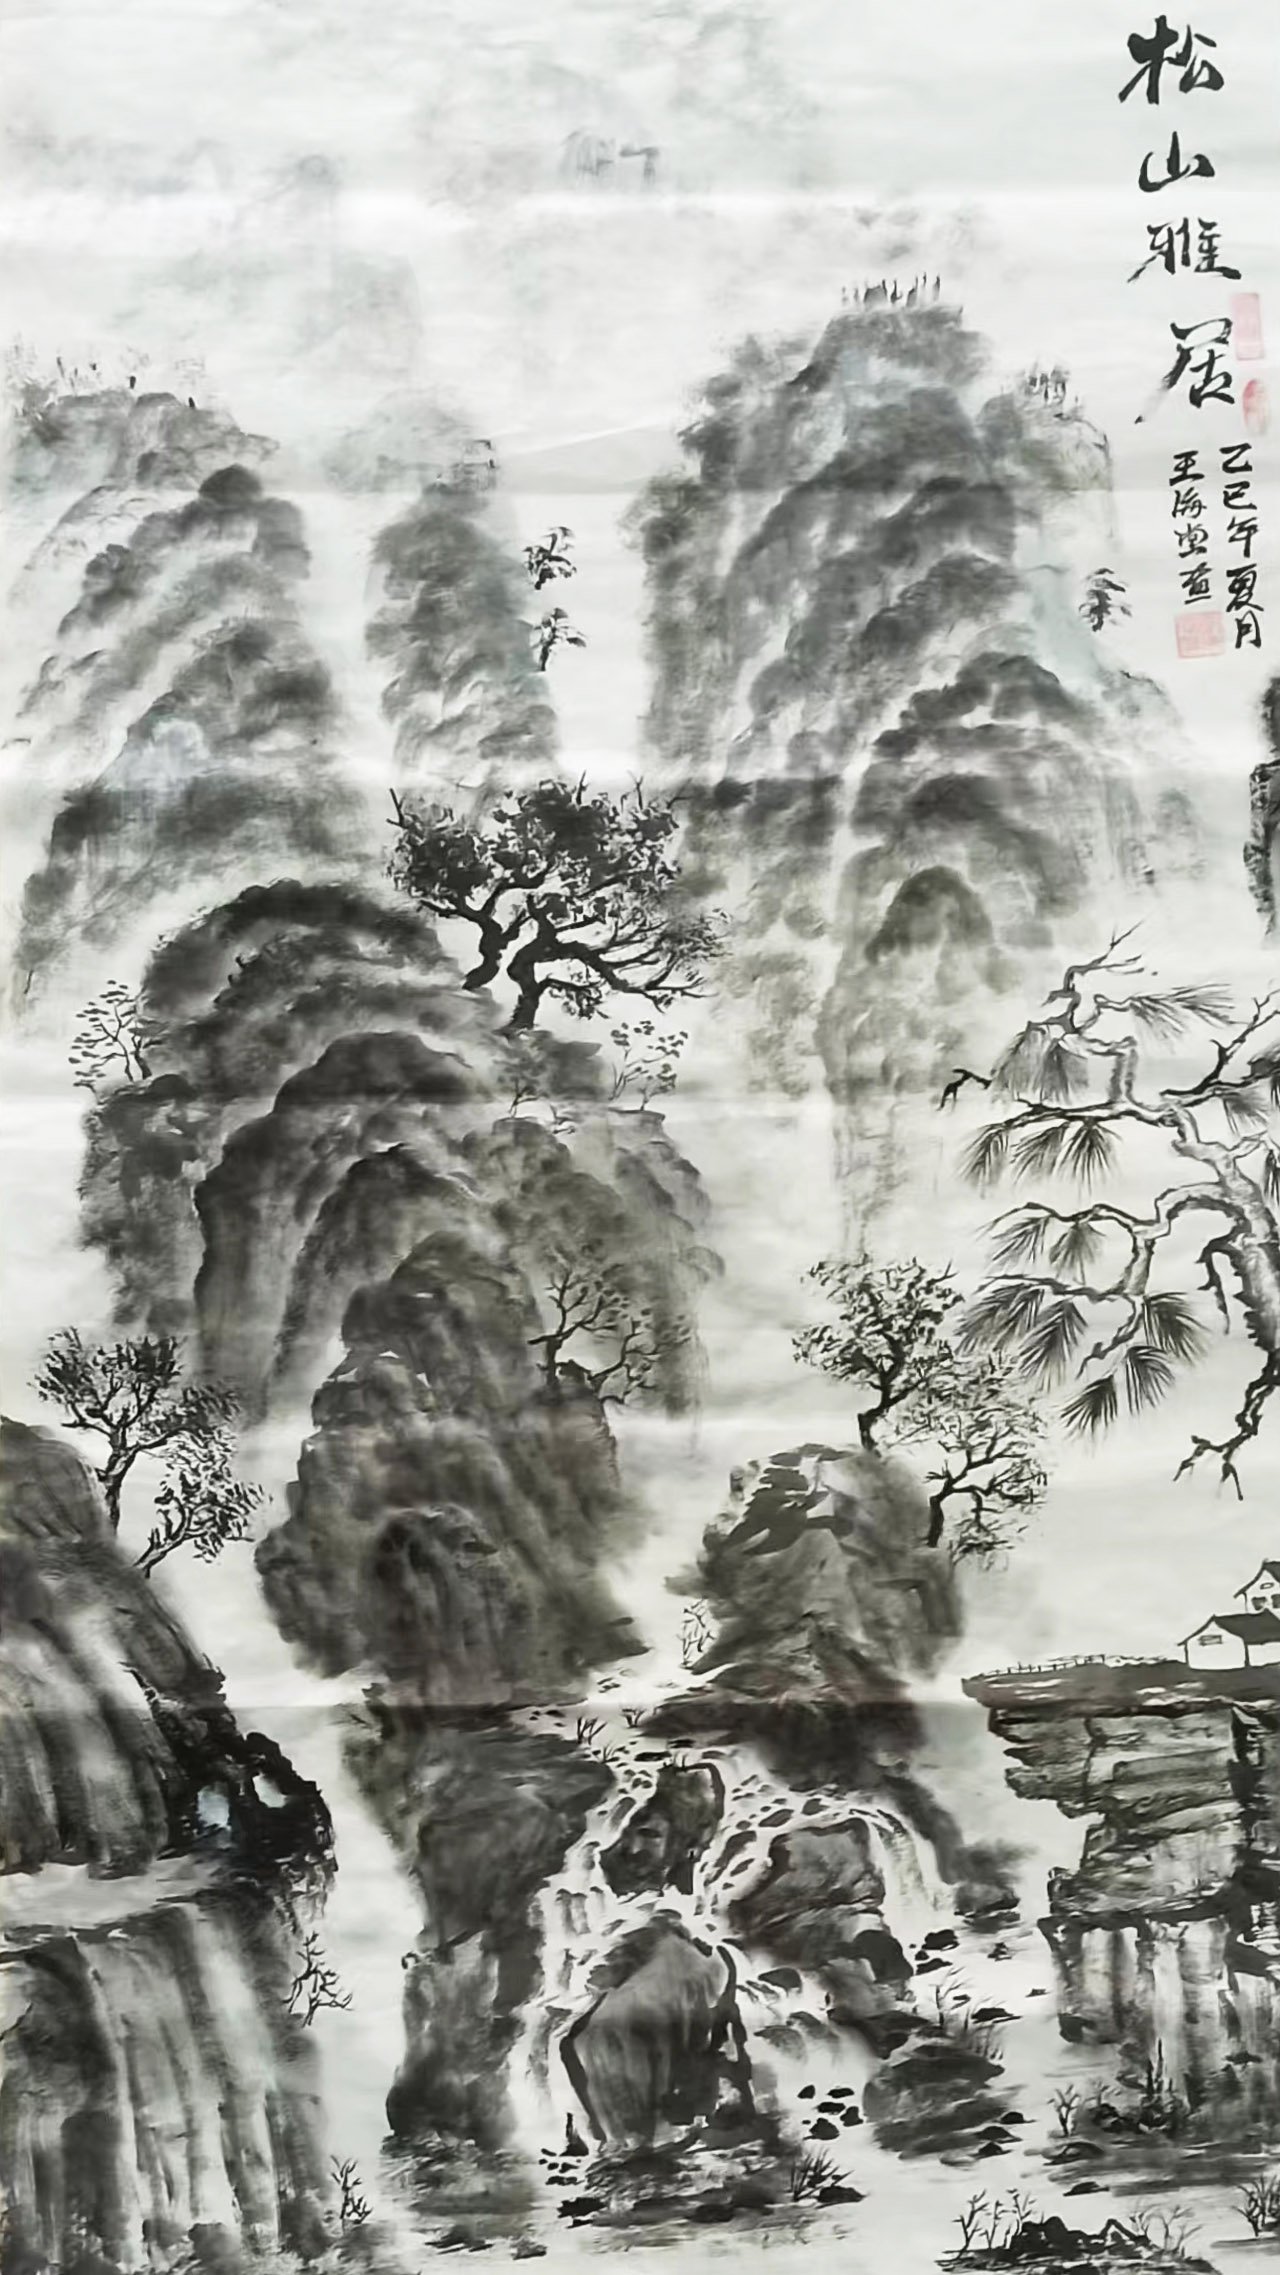 松山雅居
乙巳年夏月
王海堂画